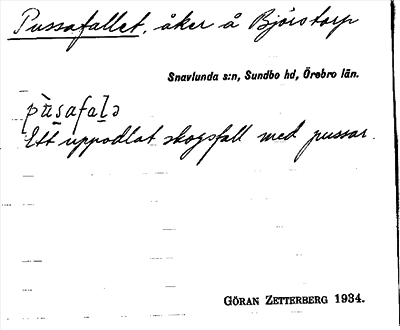 Pussafallet, åker å Björstorp
Snavlunda s:n, Sundbo hd, Örebro län.
pùs̱afaḻə
Ett uppodlat skogsfall med pussar.
GÖRAN ZETTERBERG 1934.